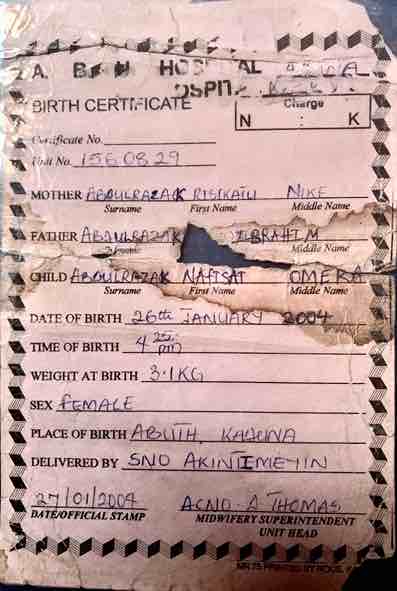 A. B HOSPITAL
OSPIT
BIRTH CERTIFICATE
Charge
N : K
Certificate No.
Unit No. 1560829
MOTHER ABDULRAZAK RISIKATU NIKE
Surname First Name Middle Name
FATHER ABDULRAZAK IBRAHIM
Middle Name
CHILD ABDULRAZAK NAFISAT OMERA
Surname First Name Middle Name
DATE OF BIRTH 26th JANUARY 2004
TIME OF BIRTH 4 25 pm
WEIGHT AT BIRTH 3.1KG
SEX FEMALE
PLACE OF BIRTH ABUTH, KADUNA
DELIVERED BY SNO AKINTIMEYIN
27/01/2004 ACNO - A THOMAS
DATE/OFFICIAL STAMP MIDWIFERY SUPERINTENDENT
UNIT HEAD